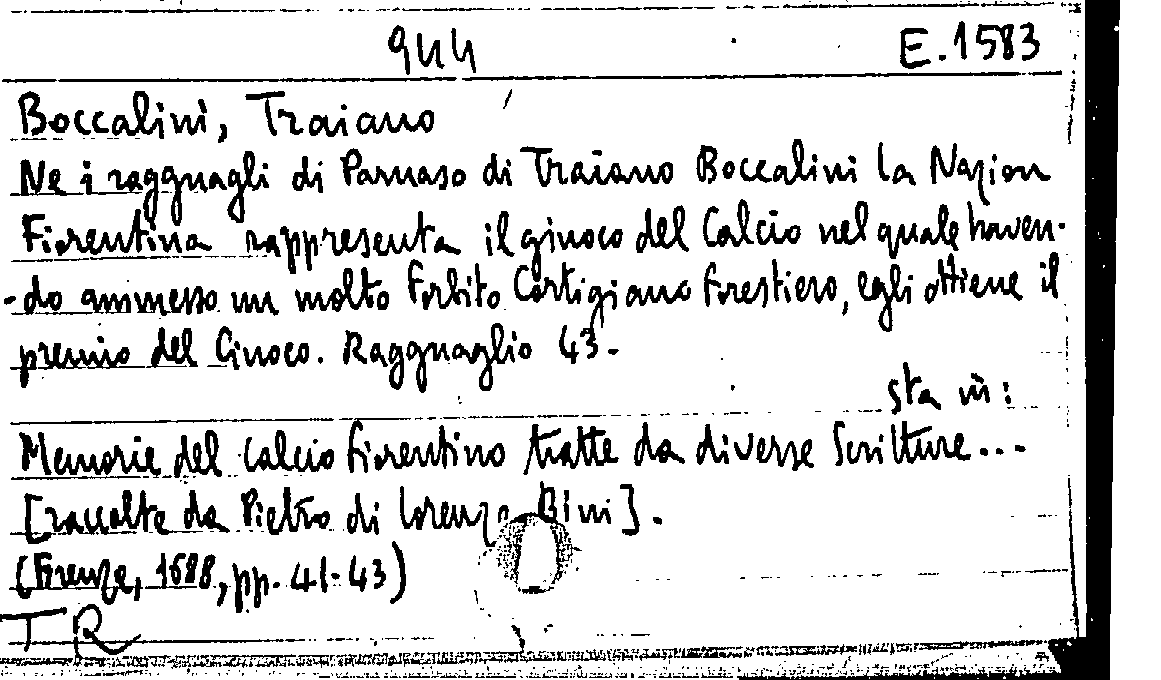 944 E.1583
Boccalini, Traiano
Ne i ragguagli di Parnaso di Traiano Boccalini la Nazion
Fiorentina rappresenta il giuoco del Calcio nel quale haven-
-do ammesso un molto forbito Cortigiano forestiero, egli ottiene il
premio del Giuoco. Ragguaglio 43.
sta in:
Memorie del Calcio fiorentino tratte da diverse Scritture...
[raccolte da Pietro di Lorenzo Bini].
(Firenze, 1688, pp. 41-43)
TR